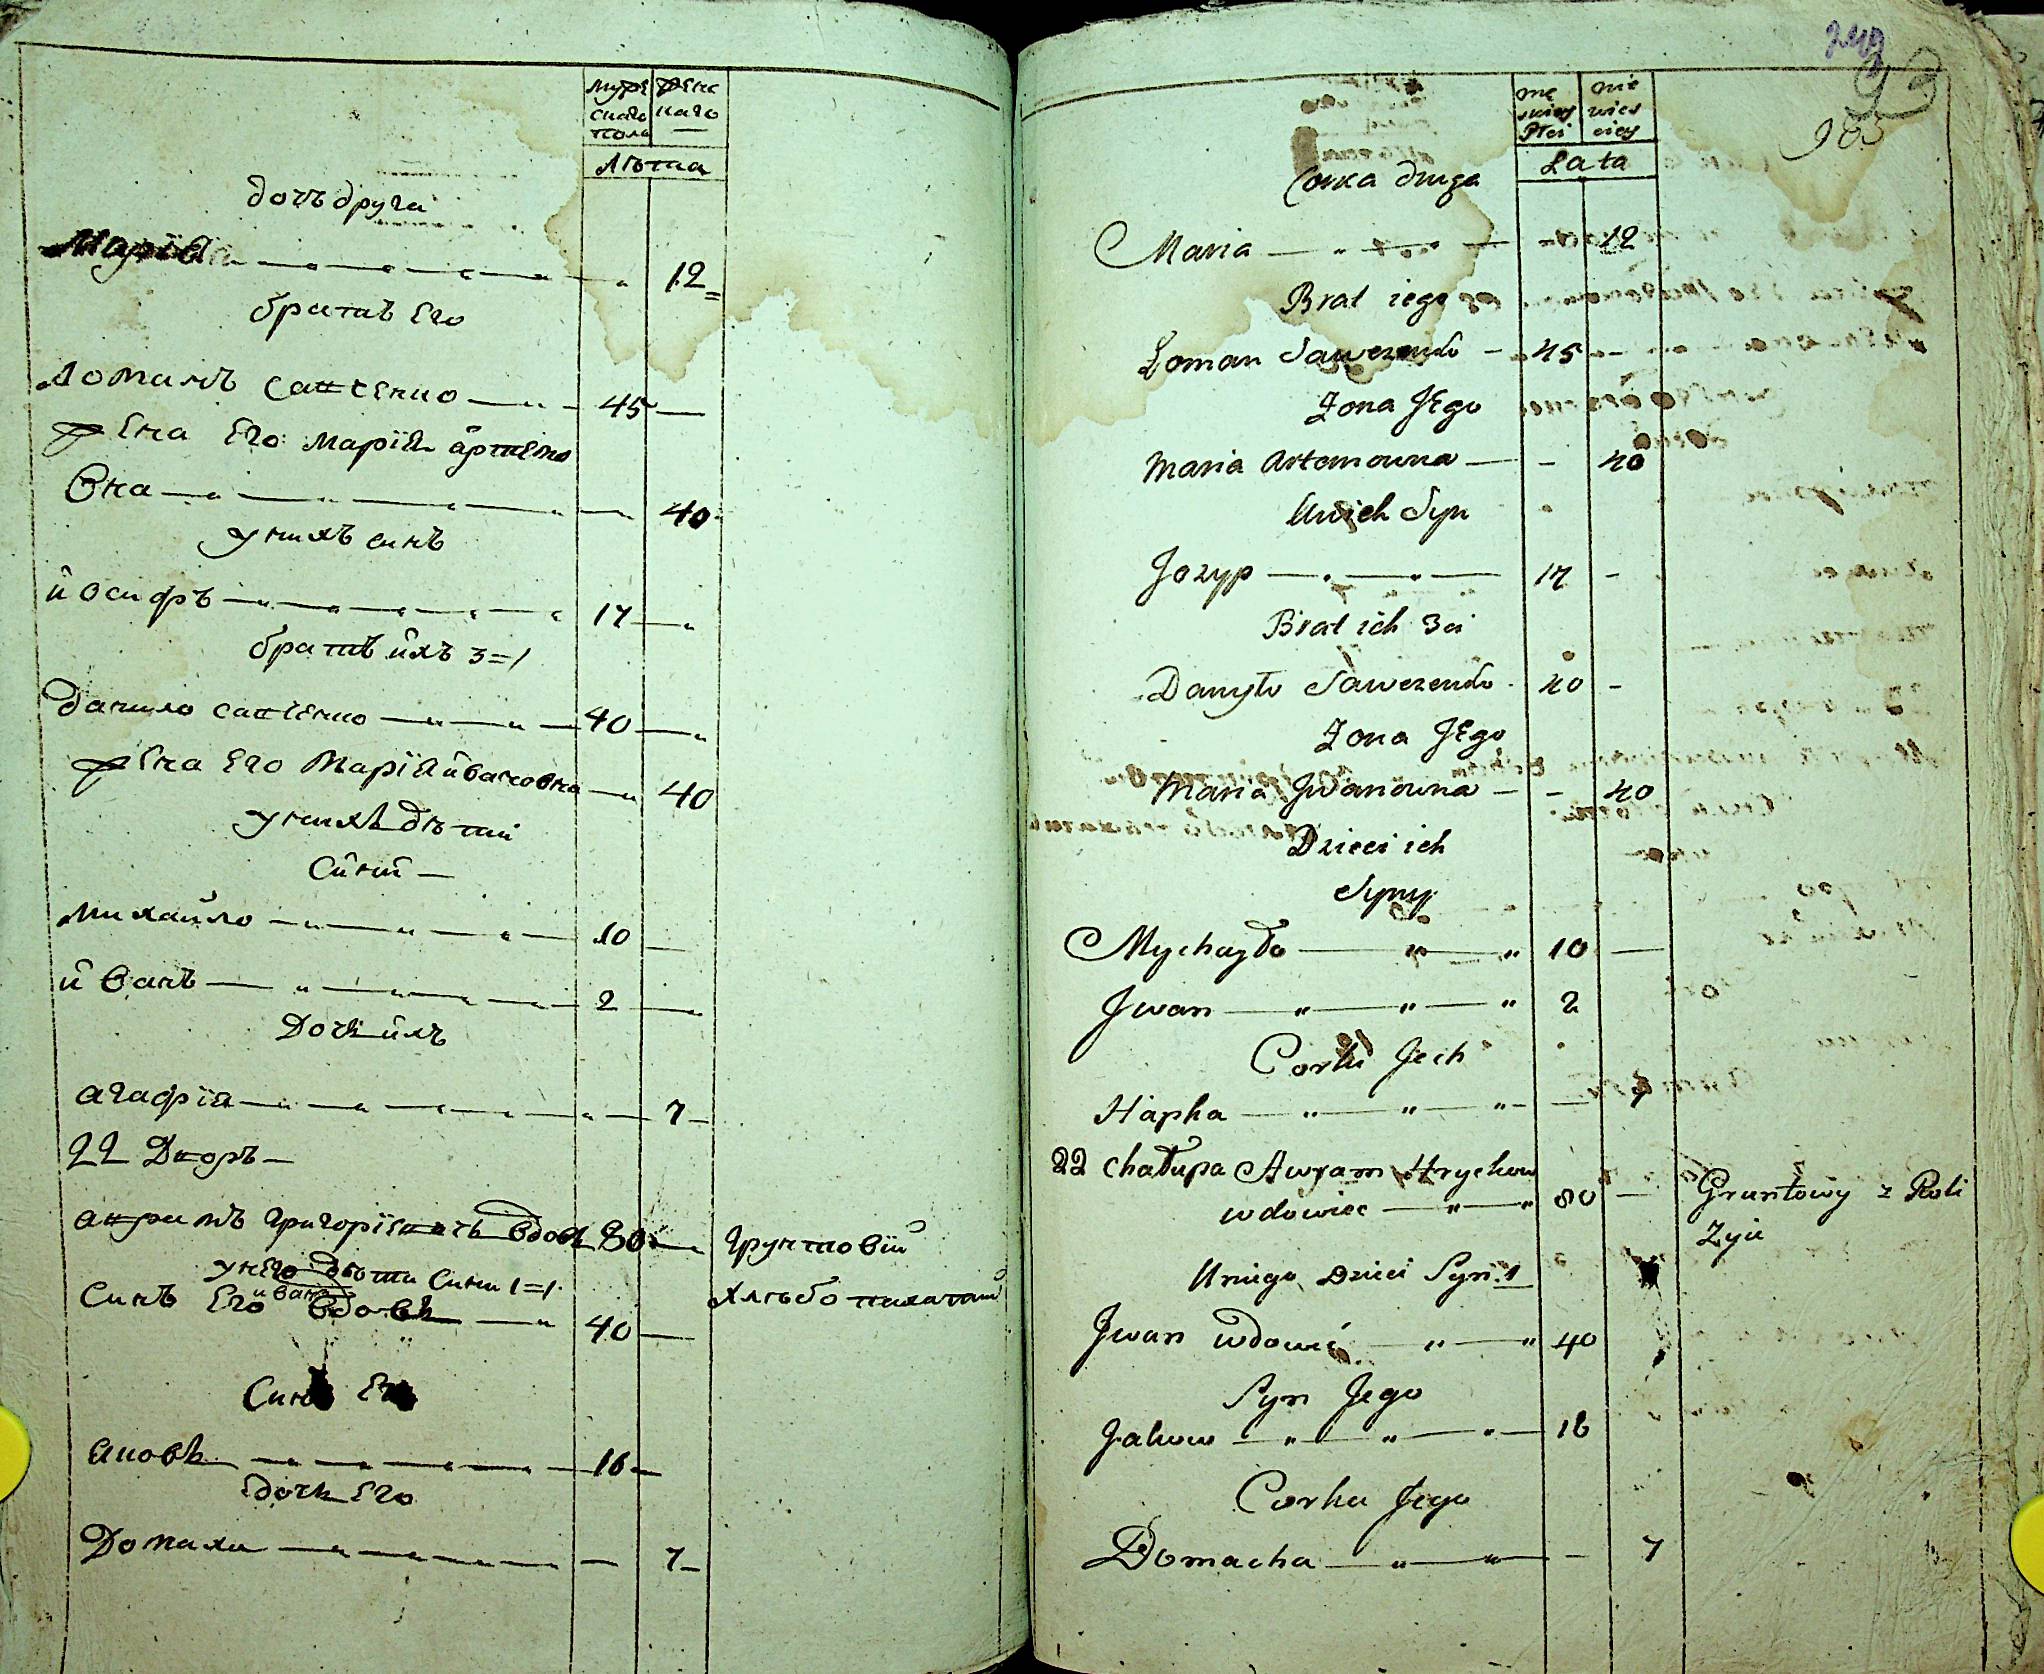 муже
скаго
пола
жено
каго
лѣта
дочъ друга
Марїя 12
братъ Его
ломанъ савченко 45
жена Его марїя артемо
вна 40
у нихъ синъ
йосифъ 17
братъ ихъ 3=i
данило савченко 40
жена Его марїя ивановна 40
у нихъ дѣти
Сини
михайло 10
иванъ 2
Дочки ихъ
агафія 7
22 Дворъ
аврамъ григорїевичъ вдовъ 80 грунтовій
у него дѣти Сини 1=i
хлѣбопахатай
Синъ Его иванъ вдовъ 40
Синъ Его
яковъ 16
дочь Его
Домаха 7
243
93
903
mę
skiey
Płci
nie
wies
ciey
Lata
Corka druga
Maria 12
Brat iego
Łoman Sawczenko 45
Żona JEgo
Maria Artemowna 40
Unich Syn
Jozyp 17
Brat ich 3ci
Danyło Sawczenko 40
Żona JEgo
Maria Jwanowna 40
Dzieci ich
Syny
Mychayło 10
Jwan 2
Corki Jch
Hapka 7
22 chałupa Awram Hrychow
wdowiec 80 Gruntowy z Roli
Żyie
Uniego Dzieci Syn 1
Jwan wdowiec 40
Syn Jego
Jakow 16
Corka Jego
Domacha 7